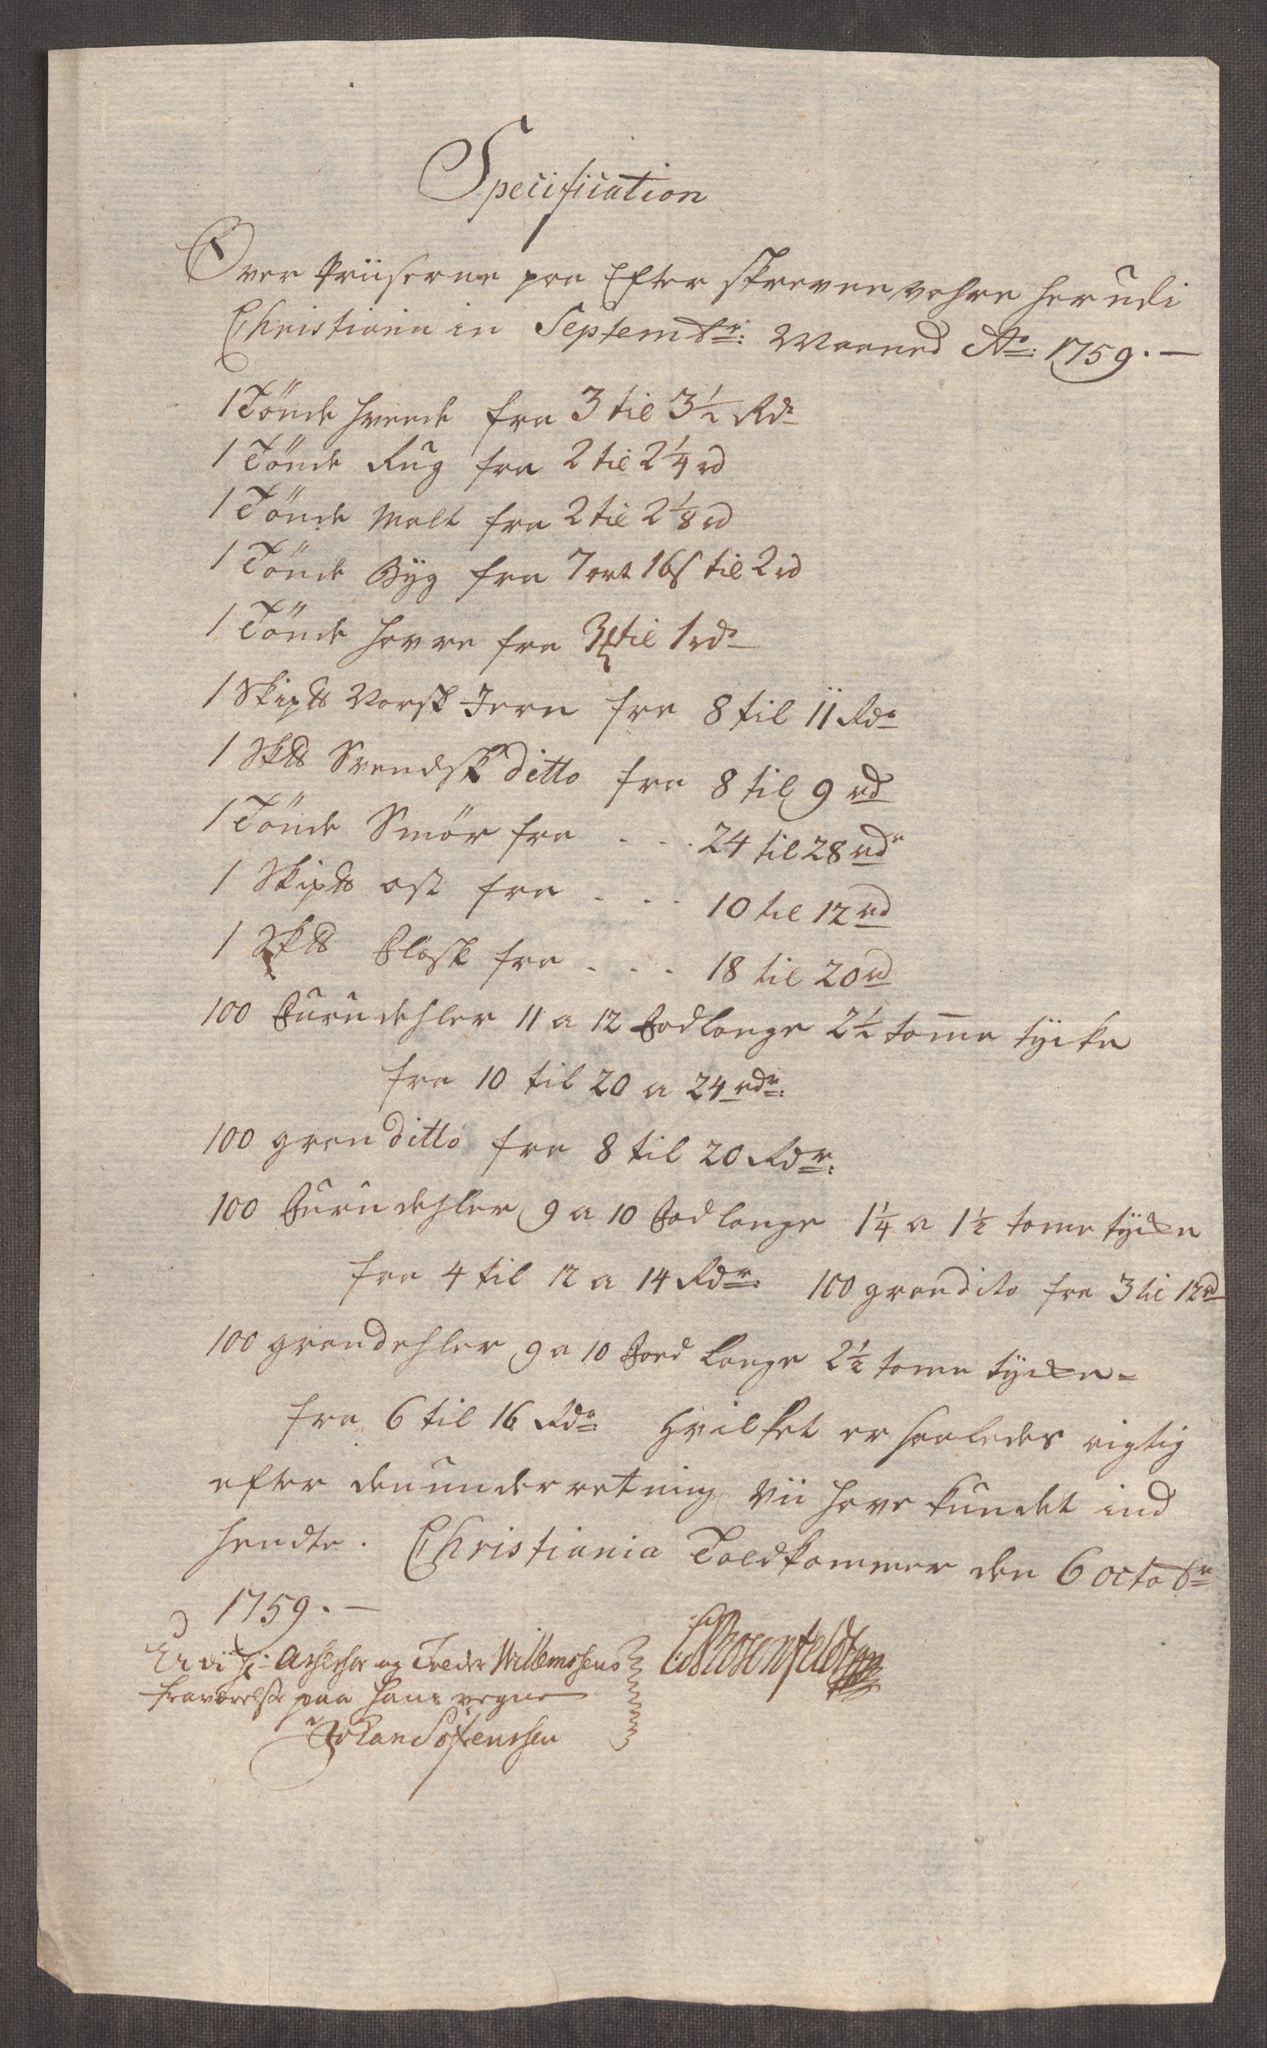 Specification
Over Priiserne paa Efter skrevne vahre her udi
Christiania in Septembr: Maaned Ao: 1759. —
1 Tönde hvede fra 3 til 3 1/2 Rdr
1 Tönde Rug fra 2 til 2 1/4 rd
1 Tönde Malt fra 2 til 2 1/8 rd
1 Tönde Byg fra 7 ort 16 s til 2 rd
1 Tönde havre fra til 1 rdr
1 Skip℔ Norsk Jern fra 8 til 11 Rdr
1 Sk℔ Svendsk ditto fra 8 til 9 rd
1 Tönde Smör fra . . . 24 til 28 rdr
1 Skip℔ ost fra . . . 10 til 12 rd
1 Sk℔ Flesk fra . . . 18 til 20 rd
100 Furudehler 11 a 12 Fod lange 2 1/2 tom̅e tycke
fra 10 til 20 a 24 rdr:
100 gran ditto fra 8 til 20 Rdr:
100 Furudehler 9 a 10 Fod lange 1 1/4 a 1 1/2 tome tycke
fra 4 til 12 a 14 Rdr: 100 gran dito fra 3 til 12 rd
100 grandehler 9 a 10 Foed lange 2 1/2 tome tycke -
fra 6 til 16 Rdr Hvilket er saaledes rigtig
efter den underretning vii have kundet ind
hendte. Christiania Toldkammer den 6 octobr
1759. —
og Tolder Willemsens
fraværelse paa hans vegne
Johan Sörenssen
Rosenfeldt